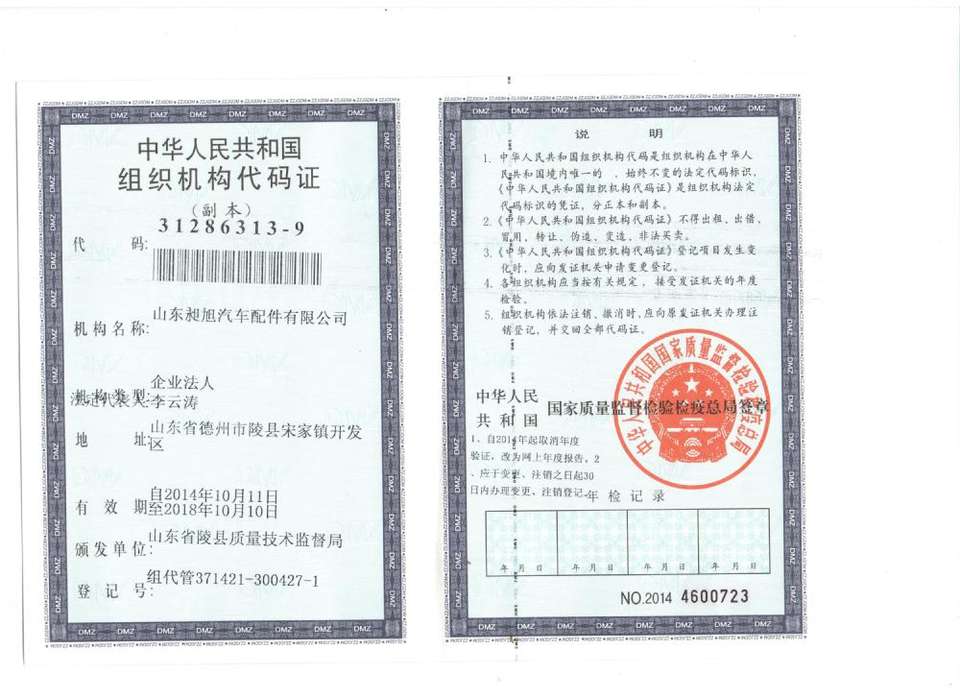 中华人民共和国
组织机构代码证
（副 本）
代 码:
31286313-9
机构名称:
山东昶旭汽车配件有限公司
机构类型:
企业法人
法定代表人:李云涛
地 址:
山东省德州市陵县宋家镇开发
区
有 效 期:
自2014年10月11日
至2018年10月10日
颁发单位:
山东省陵县质量技术监督局
登 记 号:
组代管371421-300427-1
说 明
1. 中华人民共和国组织机构代码是组织机构在中华人
民共和国境内唯一的 、始终不变的法定代码标识，
《中华人民共和国组织机构代码证》是组织机构法定
代码标识的凭证，分正本和副本。
2.《中华人民共和国组织机构代码证》不得出租、出借、
冒用、转让、伪造、变造、非法买卖。
3.《中华人民共和国组织机构代码证》登记项目发生变
化时，应向发证机关申请变更登记。
4. 各组织机构应当按有关规定，接受发证机关的年度
检验。
5. 组织机构依法注销、撤消时，应向原发证机关办理注
销登记，并交回全部代码证。
中华人民
共 和 国
国家质量监督检验检疫总局签章
中华人民共和国国家质量监督检验检疫总局
1、自2014年起取消年度
验证，改为网上年度报告。2
、应于变更、注销之日起30
日内办理变更、注销登记
年 检 记 录
年 月 日
年 月 日
年 月 日
年 月 日
NO.2014 4600723
DMZ